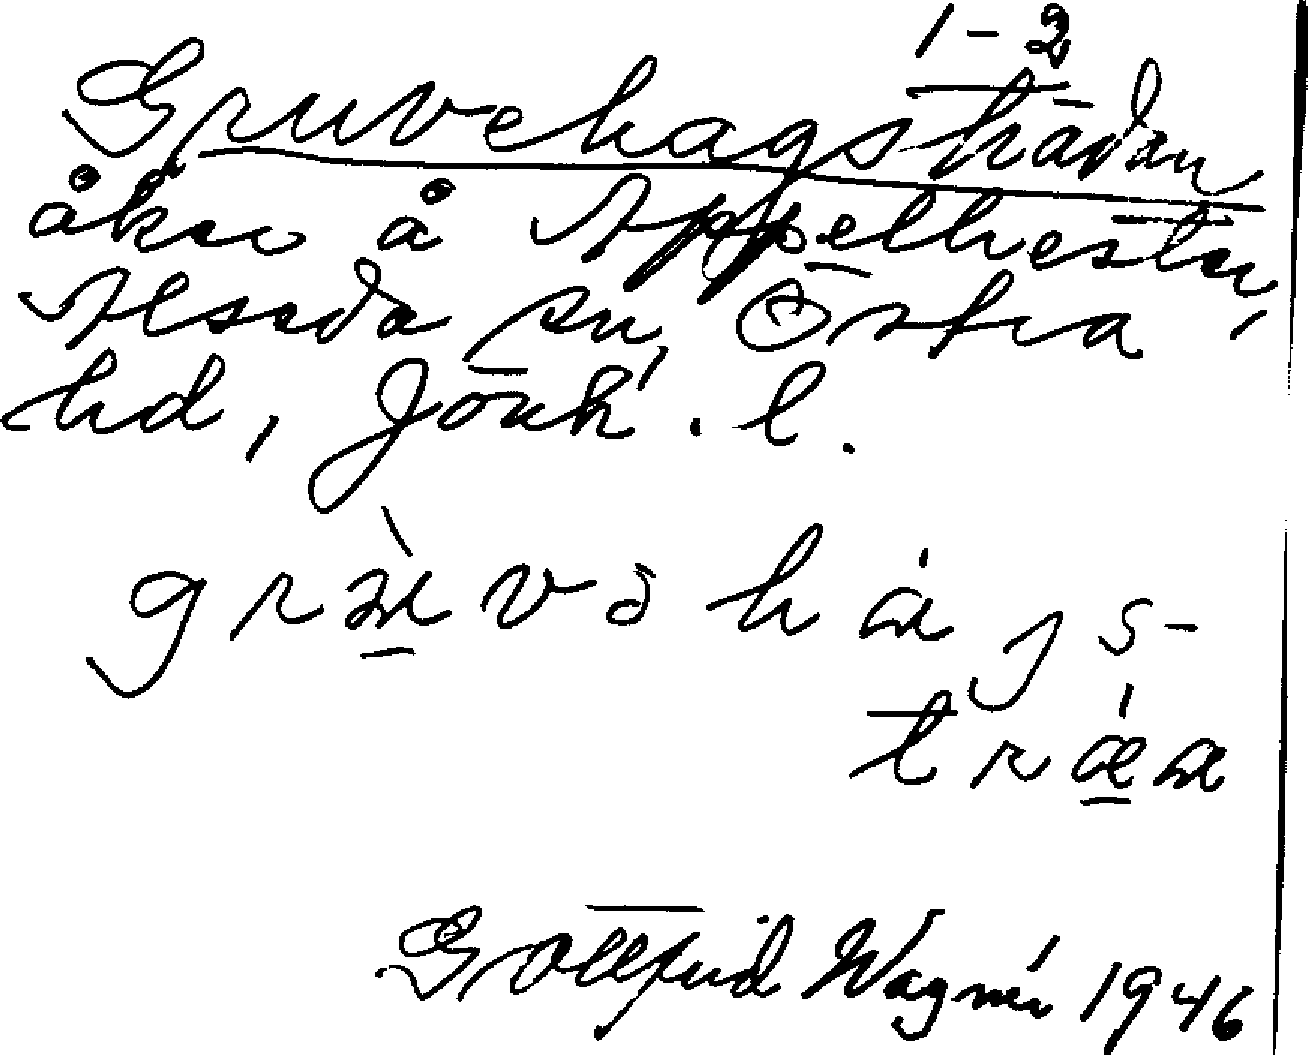 1-2
Gruvehagsträdan
åker å Äppelhester,
Alseda sn, Östra
hd, Jönk. l.
Gottfrid Wagnér 1946